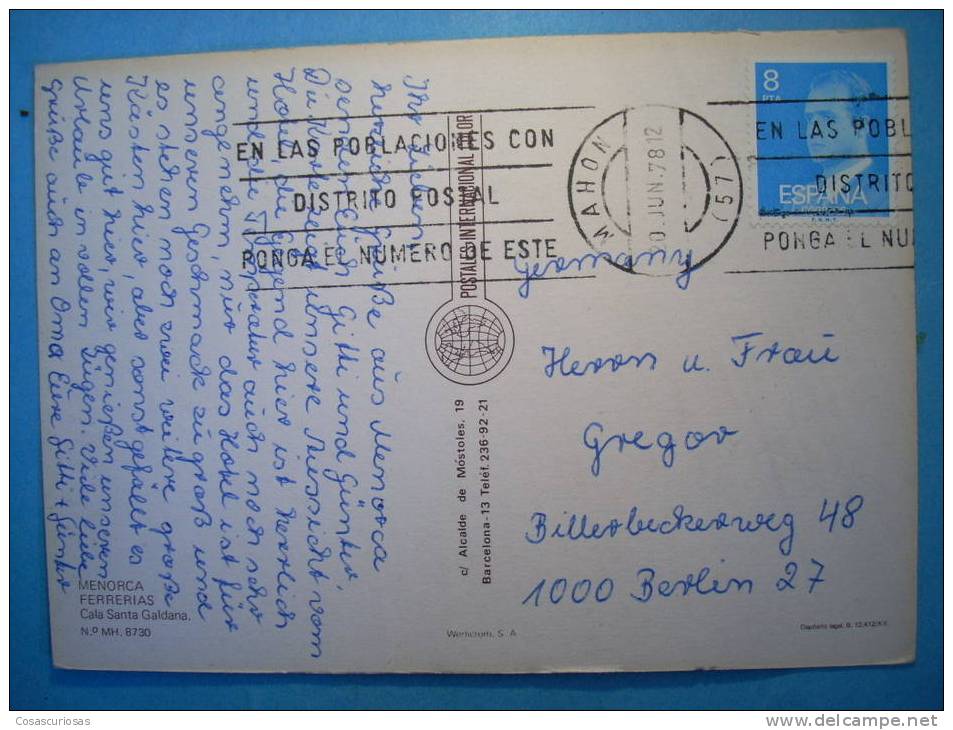 8
PTA
ESPAÑA
EN LAS POBLACIONES CON
DISTRITO POSTAL
PONGA EL NUMERO DE ESTE
MAHON
20 JUN. 78 12
(57)
EN LAS POBL
DISTRITO
PONGA EL NU
Ihr Lieben!
Grüße aus Menorca
senden Euch Gitti und Günter,
Die Karte zeigt unsere Aussicht vom
Hotel, die Gegend hier ist herrlich
und die Temperatur auch noch sehr
angenehm, nur das Hotel ist für
unseren Geschmack zu groß und
es stehen noch zwei weitere große
Kästen hier, aber sonst gefällt es
uns gut hier, wir genießen unseren
Urlaub in vollen Zügen. Viele liebe
Grüße auch an Oma Eure Gitti + Günter
POSTAL INTERNACIONAL COLOR
c/ Alcalde de Móstoles, 19
Barcelona-13 Teléf. 236-92-21
Germany
Herrn u. Frau
Gregor
Billerbeckerweg 48
1000 Berlin 27
MENORCA
FERRERIAS
Cala Santa Galdana.
N.º MH. 8730
Depósito legal, B. 12.412/XX
Cosascuriosas
www.delcampe.net